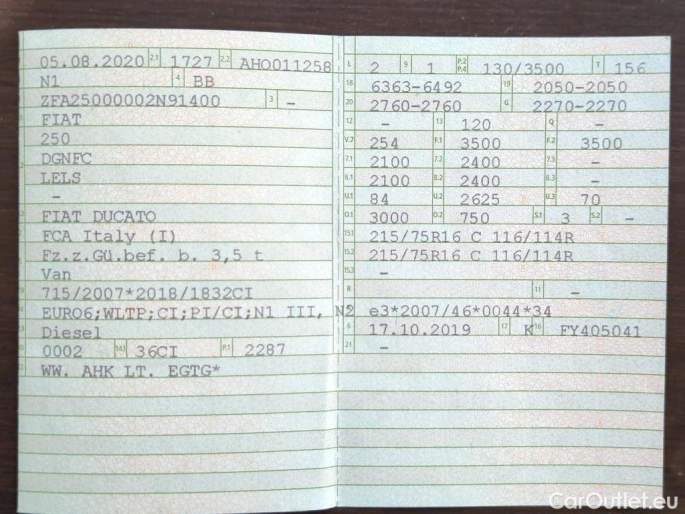 05.08.2020 2.1 1727 2.2 AHO011258
N1 4 BB
ZFA25000002N91400 3 -
FIAT
250
DGNFC
LELS
-
FIAT DUCATO
FCA Italy (I)
Fz.z.Gü.bef. b. 3,5 t
Van
715/2007*2018/1832CI
EURO6;WLTP;CI;PI/CI;N1 III, N2
Diesel
0002 14.1 36CI P.1 2287
WW. AHK LT. EGTG*
L 2 9 1 P.2 P.4 130/3500 T 156
18 6363-6492 19 2050-2050
20 2760-2760 G 2270-2270
12 - 13 120 Q -
V.7 254 F.1 3500 F.2 3500
7.1 2100 7.2 2400 7.3 -
8.1 2100 8.2 2400 8.3 -
U.1 84 U.2 2625 U.3 70
O.1 3000 O.2 750 S.1 3 S.2 -
15.1 215/75R16 C 116/114R
15.2 215/75R16 C 116/114R
15.3 -
R 11 -
K e3*2007/46*0044*34
6 17.10.2019 17 K 16 FY405041
21 -
CarOutlet.eu